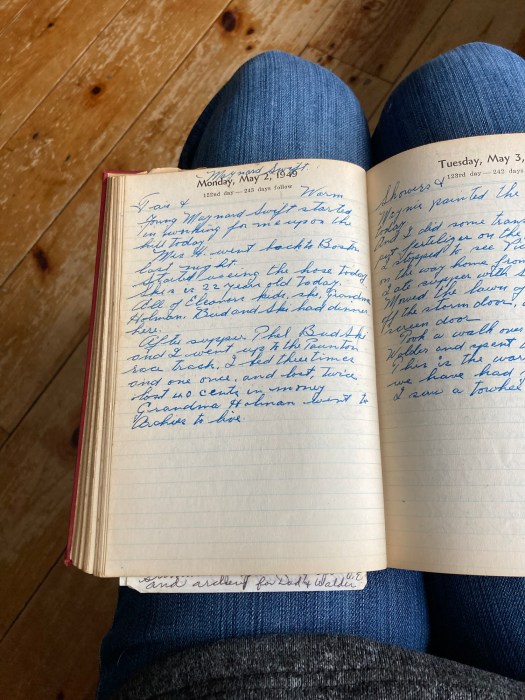 Maynard Swift
Monday, May 2, 1949
122nd day — 243 days follow
Fair & Warm
Young Maynard Swift started
in working for me up on the
hill today.
Mrs H. went back to Boston
last night.
Started using the hose today
is 22 years old today.
All of Eleanors kids, she, Grandma
Holman, Bud and Ske had dinner
here.
After supper Phel, Bud Ske
and I went up to the Taunton
race track, I bed three times
and one once, and lost, twice
lost 40 cents in money
Grandma Holman went to
to live.
and for Dad & Walder
Tuesday, May 3,
123rd day — 242 days
Showers &
Wayne painted the
today
And I did some tran
put fertilizer on the
I stopped to see
on the way home from
I ate supper with
Mowed the lawn of
off the storm door,
screen door
Took a walk over
Walder and spent
This is the
we have had
I saw a towhee